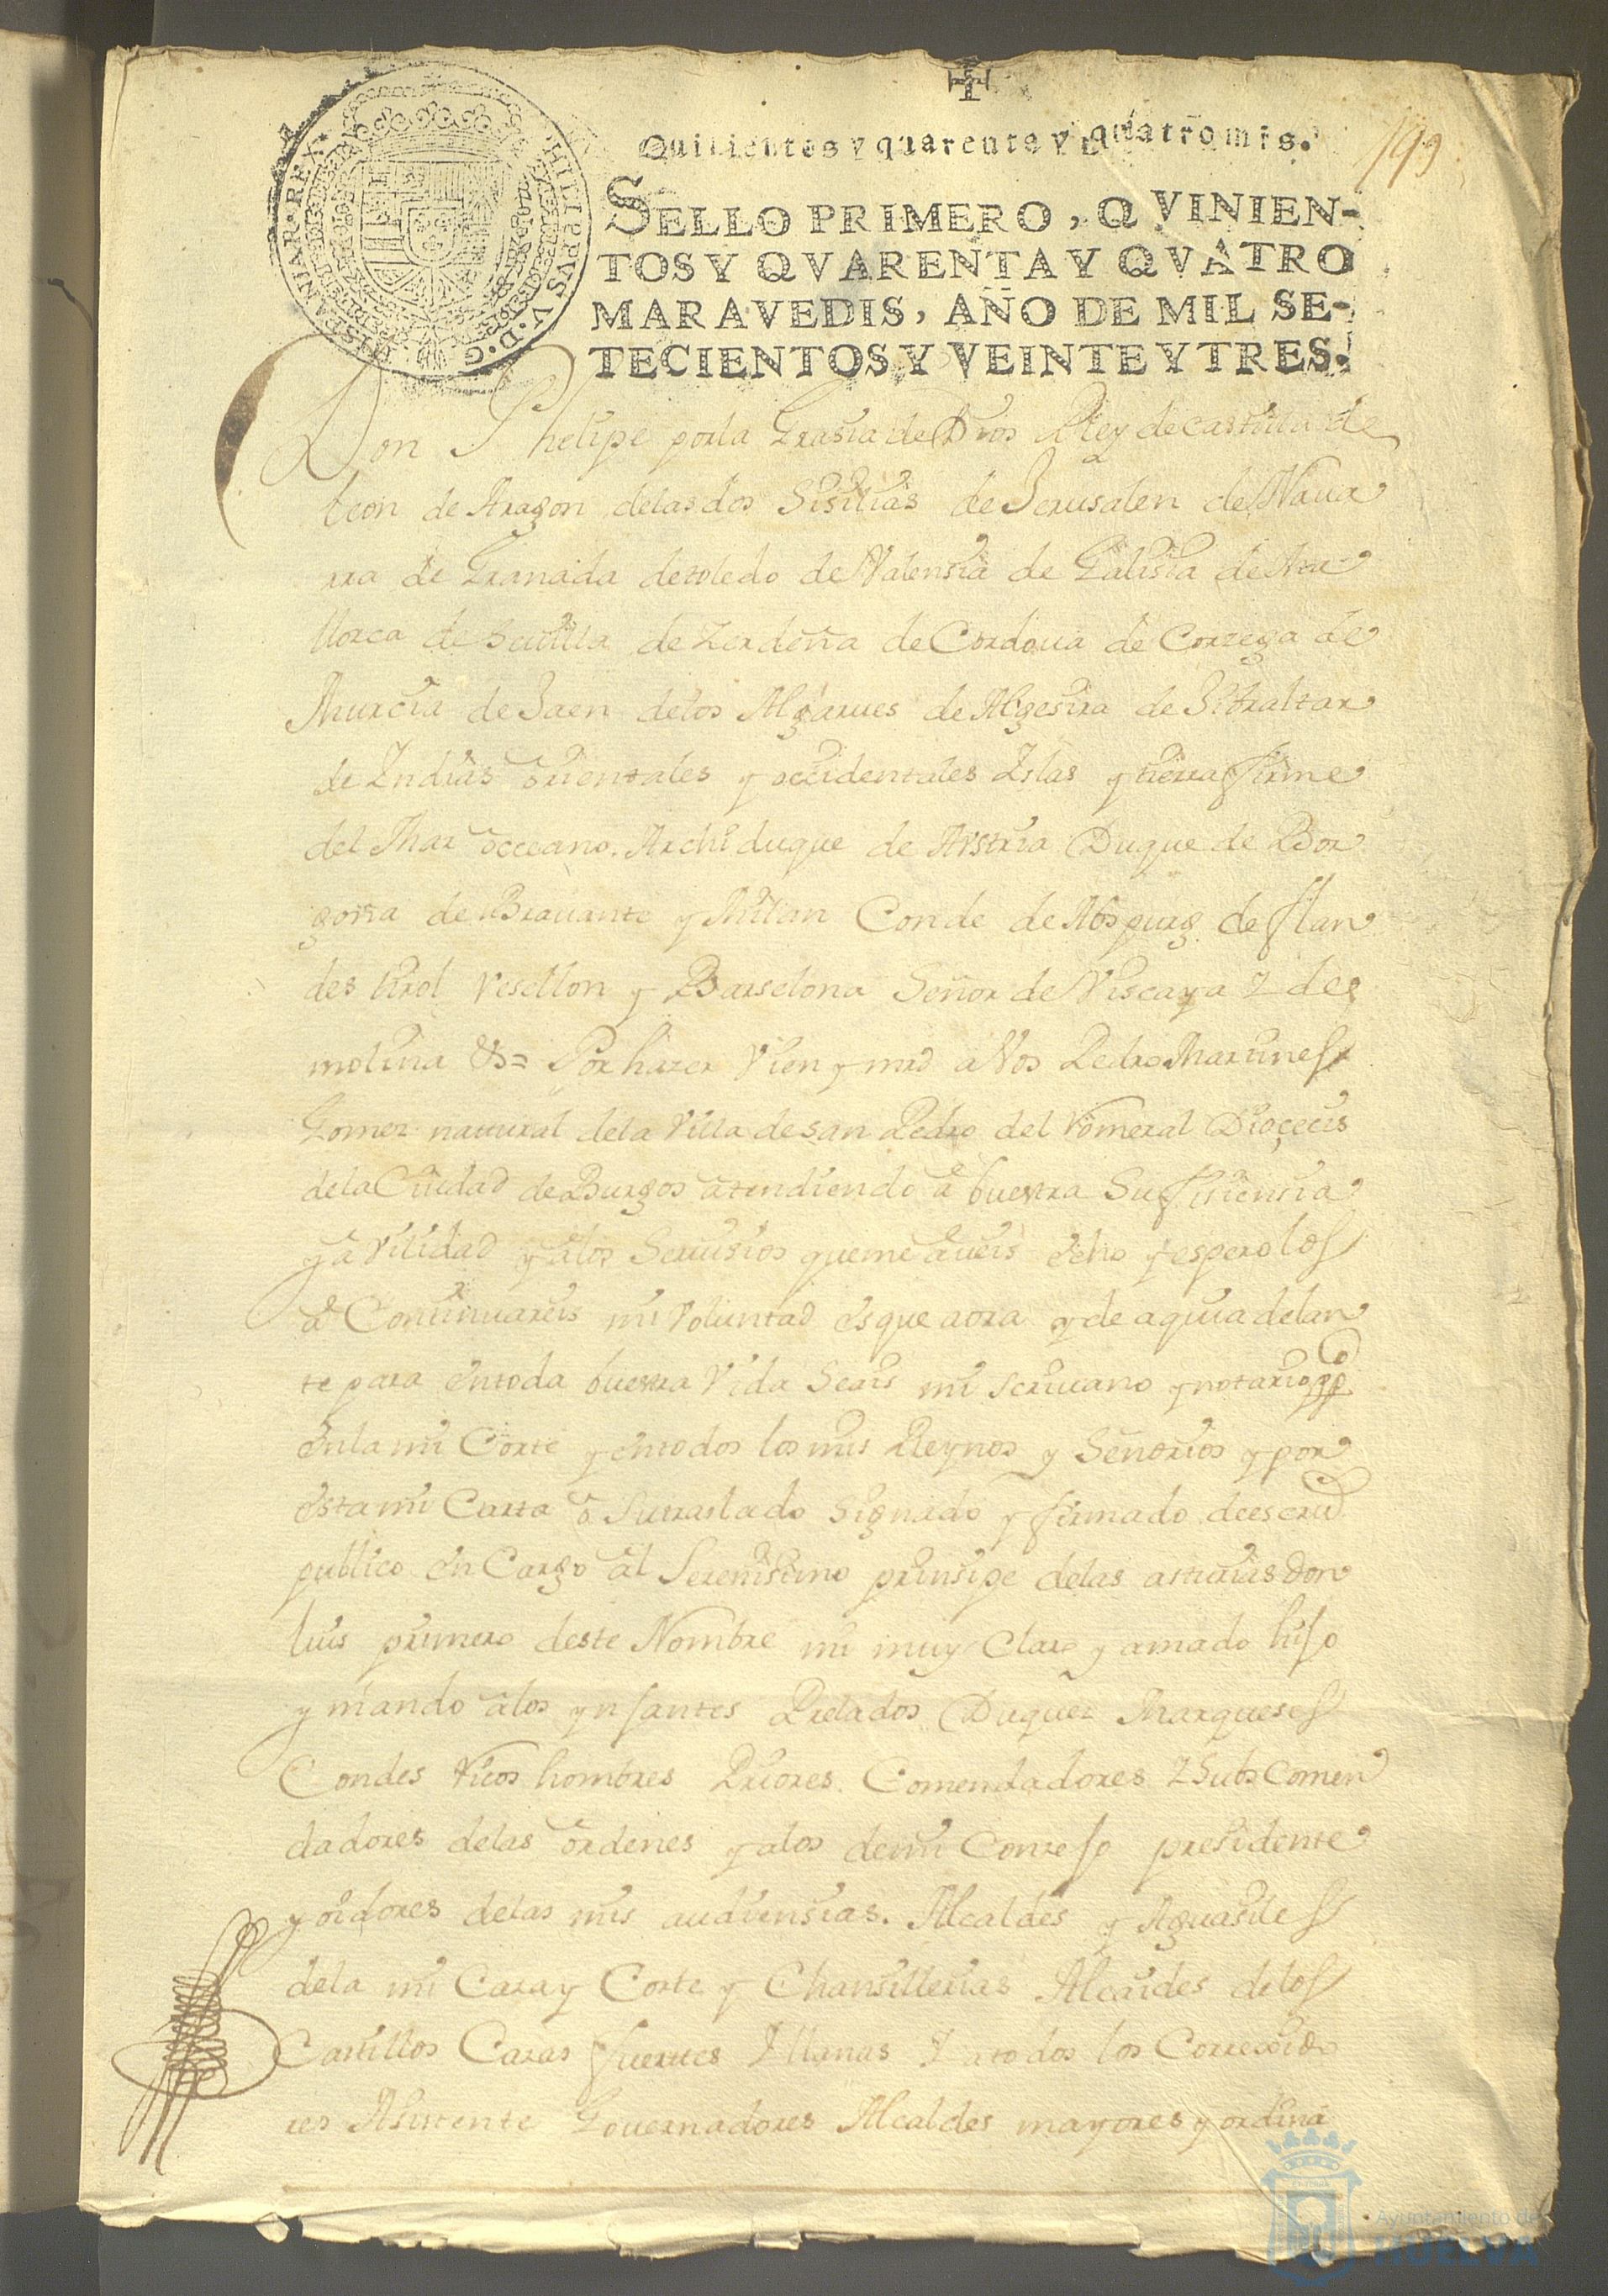 HISPANIAR·REX· PHILIPPUS·V·D·G·
Quinientos y quarenta y quatro mrs.
199
SELLO PRIMERO, QVINIEN-
TOS Y QVARENTA Y QVATRO
MARAVEDIS, AÑO DE MIL SE-
TECIENTOS Y VEINTE Y TRES.
Don Phelipe por la Grasia de Dios Rey de castilla de
leon de Aragon delas dos Sisilias de Jerusalen de Naua
rra de Granada de toledo de Valensia de Galisia de Ma
llorca de Seuilla de Zerdeña de Cordoua de Corzega de
Murcia de Jaen delos Algarues de Algesira de Jibraltar
de Yndias orientales y occidentales Yslas y tierra firme
del Mar occeano. Archiduque de Avstria Duque de Bor
goña de Brauante y Milan Conde de Abspurg de flan
des tirol Rosellon y Barselona Señor de Viscaya y de
molina &a = Por hazer Vien y mrd a Vos Pedro Martines
Gomez natural dela Villa de san Pedro del Romeral Diocecis
dela Ciudad de Burgos atendiendo a buestra Sufisiensia
y avilidad y alos Seruisios que me aueis echo y espero los
Continuareis mi Voluntad es que aora y de aqui adelan
te para en toda buestra Vida Seais mi scriuano y notario ppco
en la mi Corte y en todos los mis Reynos y Señorios y por
esta mi Carta o Su traslado Signado y firmado de escriu
publico en Cargo al Serenisimo prinsipe delas asturias don
luis primero deste Nombre mi muy Claro y amado hijo
y mando alos ynfantes Prelados Duquez Marqueses
Condes ricos hombres Priores. Comendadores y Subs Comen
dadores delas ordenes y alos de mi Consejo presidente
y oidores delas mis audiensias. Alcaldes y Aguasiles
dela mi Casa y Corte y Chansillerias Alcaides delos
Castillos Casas fuertes y llanas y a todos los Correxido
res Asistente Gouernadores Alcaldes mayores y ordina
Ayuntamiento de
HUELVA